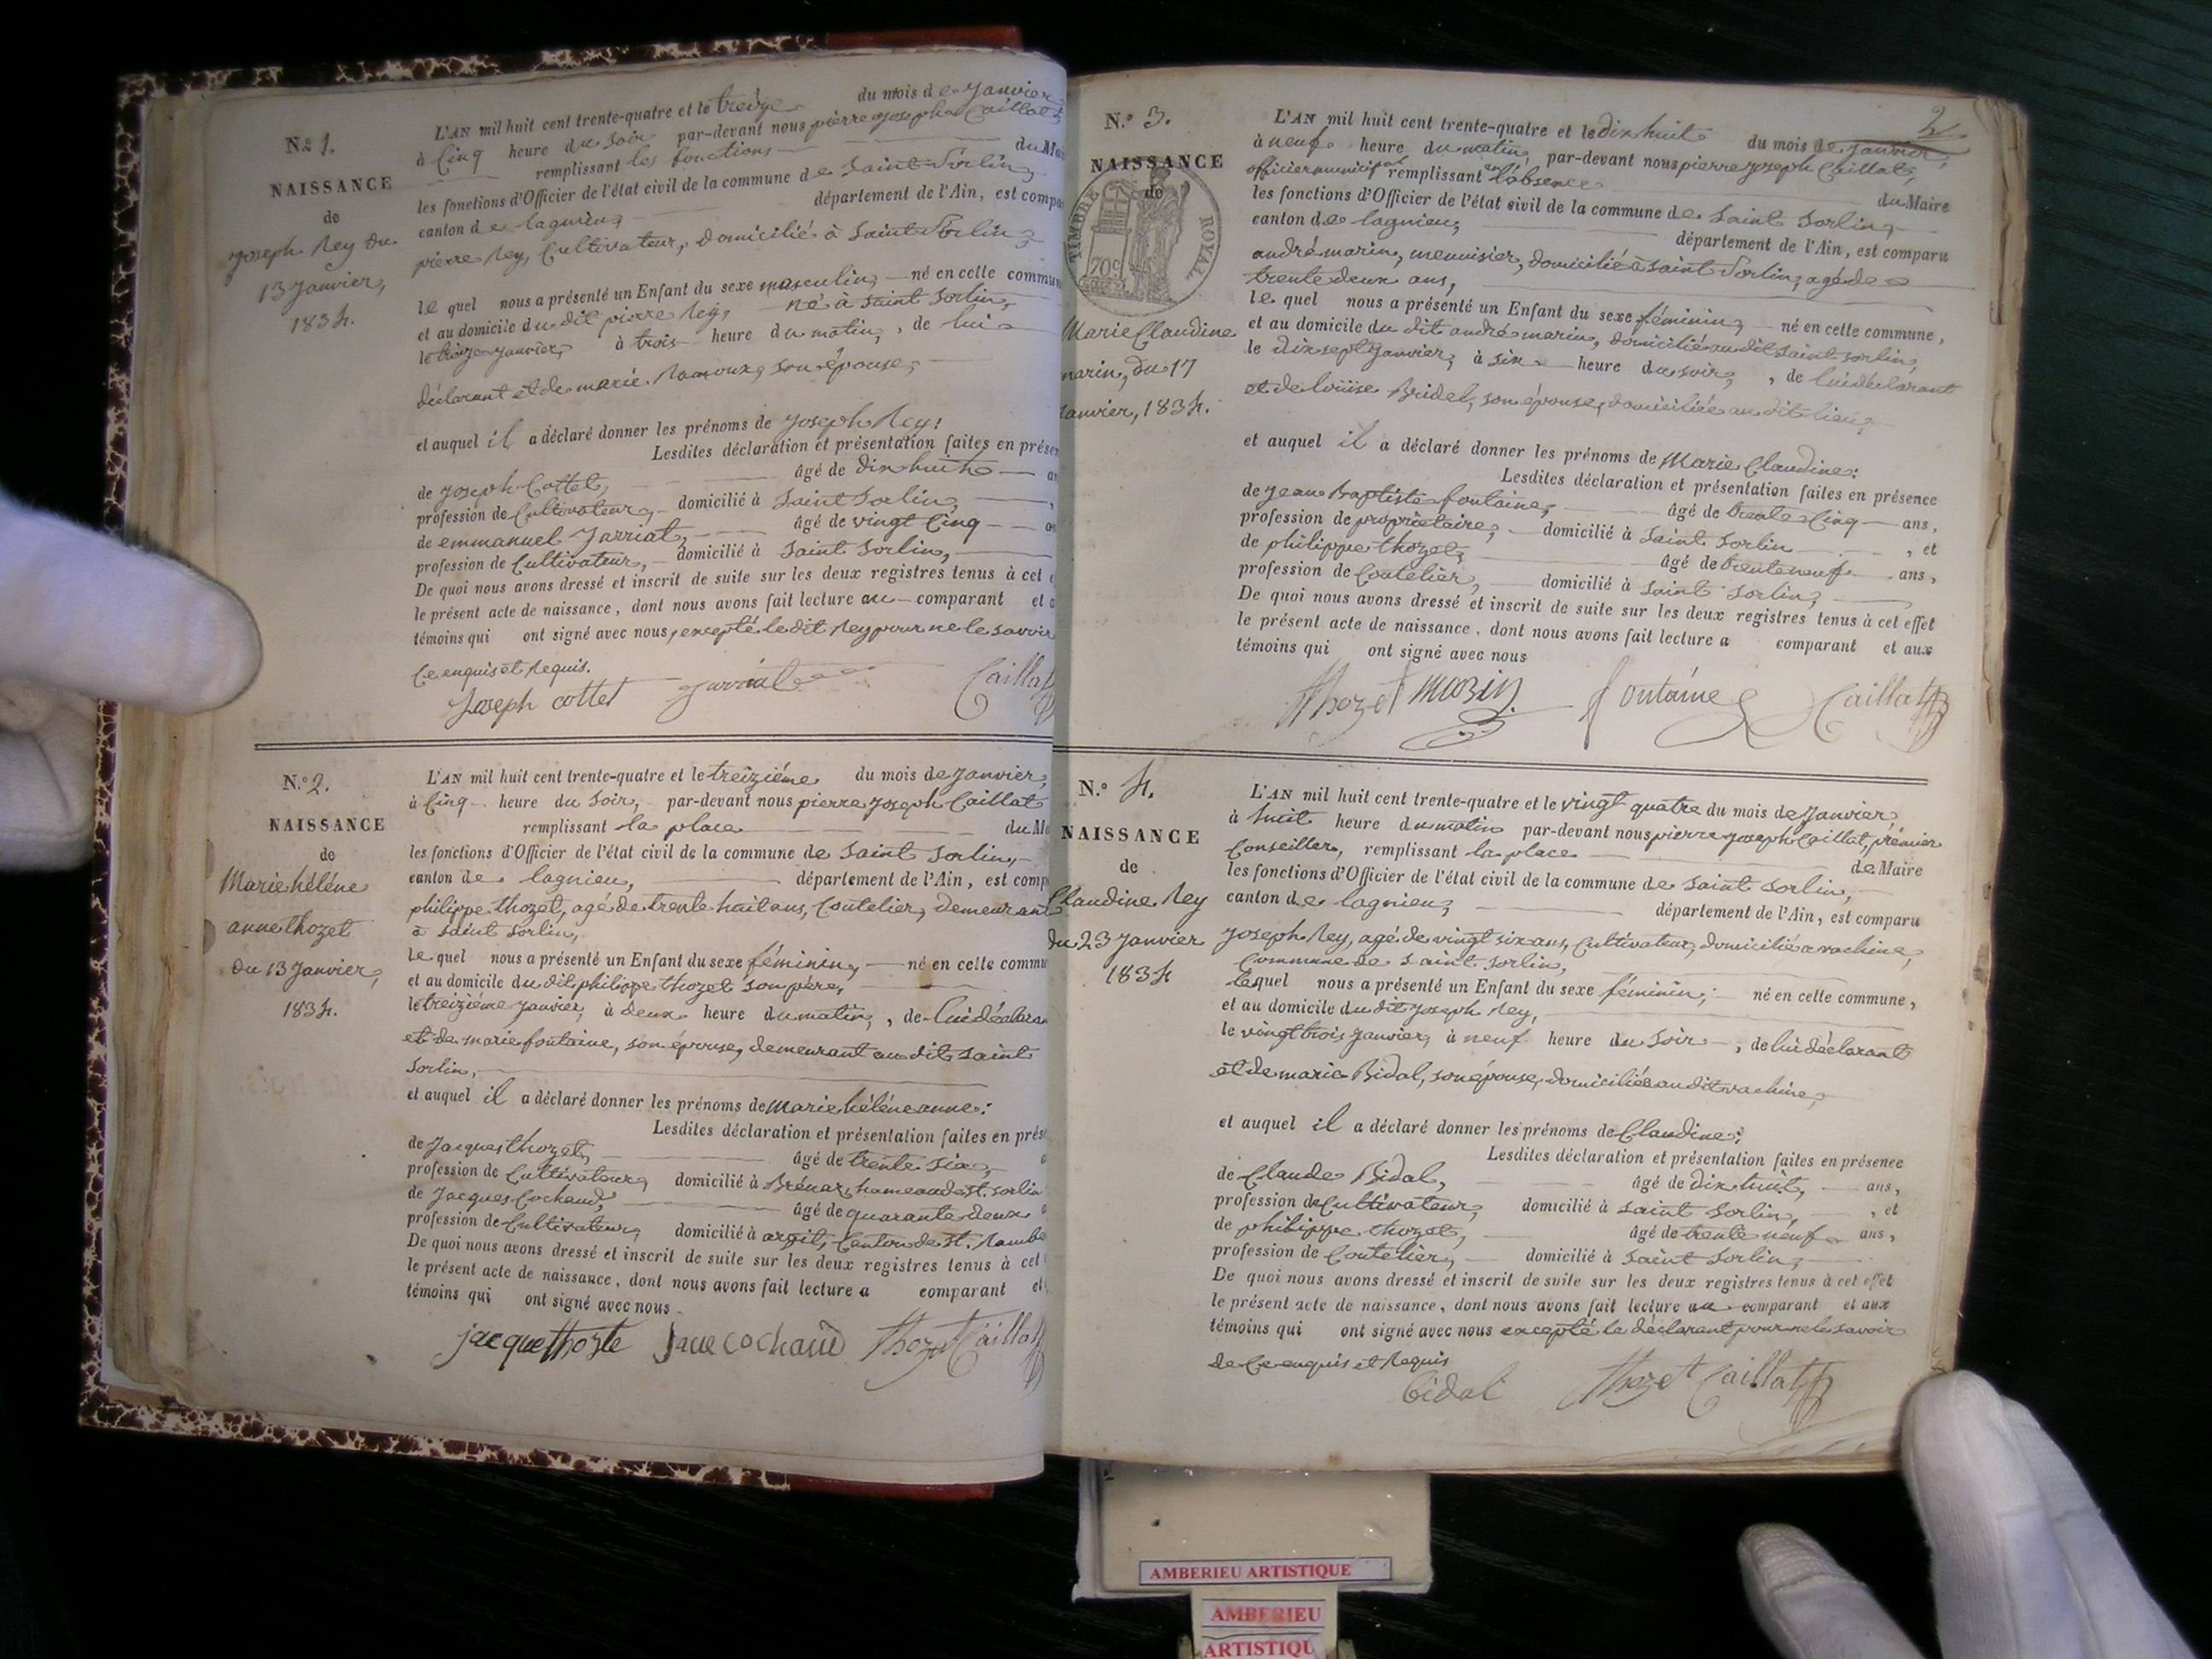 N.º 1.
NAISSANCE
de
Joseph Rey du
13 Janvier,
1834.
L'AN mil huit cent trente-quatre et le treize du mois de Janvier
à Cinq heure du Soir par-devant nous pierre Joseph Caillat,
remplissant les fonctions du Mai
les fonctions d'Officier de l'état civil de la commune de Saint Sorlin,
canton de lagnieu, département de l'Ain, est compa
pierre Rey, Cultivateur, domicilié à Saint Sorlin,
le quel nous a présenté un Enfant du sexe masculin, né en cette commun
et au domicile du dit pierre Rey, né à Saint Sorlin,
le treize janvier, à trois heure du matin, de lui
déclarant et de marie Ramoux, son épouse,
et auquel il a déclaré donner les prénoms de Joseph Rey:
Lesdites déclaration et présentation faites en présen
de Joseph Cottet, âgé de dix huit an
profession de Cultivateur, domicilié à Saint Sorlin,
de emmanuel Jarriat, âgé de vingt Cinq
profession de Cultivateur, domicilié à Saint Sorlin,
De quoi nous avons dressé et inscrit de suite sur les deux registres tenus à cet e
le présent acte de naissance, dont nous avons fait lecture au comparant et a
témoins qui ont signé avec nous, excepté le dit Rey pour ne le savoir
Ce enquis et Requis.
Joseph cottet Jarriat Caillat
N.º 2.
NAISSANCE
de
Marie héléne
anne thozet
du 13 Janvier,
1834.
L'AN mil huit cent trente-quatre et le treiziéme du mois de Janvier,
à Cinq heure du Soir, par-devant nous pierre Joseph Caillat
remplissant la place du Ma
les fonctions d'Officier de l'état civil de la commune de Saint Sorlin,
canton de lagnieu, département de l'Ain, est comp
philippe thozet, agé de trente huit ans, Coutelier, demeurant
à Saint Sorlin,
le quel nous a présenté un Enfant du sexe féminin, né en cette commu
et au domicile du dit philippe thozet son père,
le treiziéme janvier, à deux heure du matin, de lui déclaran
et de marie fontaine, son épouse, demeurant au dit Saint
Sorlin,
et auquel il a déclaré donner les prénoms de Marie héléne anne:
Lesdites déclaration et présentation faites en prése
de Jacques thozet, âgé de trente Six,
profession de Cultivateur, domicilié à Brénaz, hameau de St. Sorlin
de Jacques Cochand, âgé de quarante deux
profession de Cultivateur, domicilié à argit, Canton de St. Rambe
De quoi nous avons dressé et inscrit de suite sur les deux registres tenus à cet
le présent acte de naissance, dont nous avons fait lecture a comparant et
témoins qui ont signé avec nous
jacque thozte Jaque cochand Thozet Caillat
2
N.º 3.
NAISSANCE
de
TIMBRE ROYAL
70c
Marie Claudine
marin, du 17
Janvier, 1834.
L'AN mil huit cent trente-quatre et le dix huit du mois de Janvier,
à neuf heure du matin, par-devant nous pierre Joseph Caillat,
officier municipal remplissant en l'absence du Maire
les fonctions d'Officier de l'état civil de la commune de Saint Sorlin,
canton de lagnieu, département de l'Ain, est comparu
andré marin, menuisier, domicilié à Saint Sorlin, agé de
trente deux ans,
le quel nous a présenté un Enfant du sexe féminin, né en cette commune,
et au domicile du dit andré marin, domicilié au dit Saint Sorlin,
le dix sept Janvier, à six heure du soir, de lui déclarant
et de loüise Bridel, son épouse, domiciliée au dit lieu,
et auquel il a déclaré donner les prénoms de Marie Claudine:
Lesdites déclaration et présentation faites en présence
de Jean Baptiste fontaine, âgé de trente Cinq ans,
profession de propriétaire, domicilié à Saint Sorlin, et
de philippe thozet, âgé de trente neuf ans,
profession de Coutelier, domicilié à Saint Sorlin,
De quoi nous avons dressé et inscrit de suite sur les deux registres tenus à cet effet
le présent acte de naissance, dont nous avons fait lecture a comparant et aux
témoins qui ont signé avec nous
Thozet marin fontaine Caillat
N.º 4.
NAISSANCE
de
Claudine Rey
du 23 Janvier
1834
L'AN mil huit cent trente-quatre et le vingt quatre du mois de Janvier,
à huit heure du matin par-devant nous pierre Joseph Caillat, prémier
Conseiller, remplissant la place de Maire
les fonctions d'Officier de l'état civil de la commune de Saint Sorlin,
canton de lagnieu, département de l'Ain, est comparu
Joseph Rey, agé de vingt six ans, Cultivateur, domicilié a vachine,
Commune de Saint Sorlin,
lequel nous a présenté un Enfant du sexe féminin; né en cette commune,
et au domicile du dit Joseph Rey,
le vingt trois Janvier, à neuf heure du Soir, de lui déclarant
et de marie Bidal, son épouse, domiciliés au dit vachine,
et auquel il a déclaré donner les prénoms de Claudine:
Lesdites déclaration et présentation faites en présence
de Claude Bidal, âgé de dix huit, ans,
profession de Cultivateur, domicilié à Saint Sorlin, et
de philippe thozet, âgé de trente neuf ans,
profession de Coutelier, domicilié à Saint Sorlin,
De quoi nous avons dressé et inscrit de suite sur les deux registres tenus à cet effet
le présent acte de naissance, dont nous avons fait lecture au comparant et aux
témoins qui ont signé avec nous excepté le déclarant pour ne le savoir
de Ce enquis et Requis
bidal Thozet Caillat
AMBERIEU ARTISTIQUE
AMBERIEU
ARTISTIQU